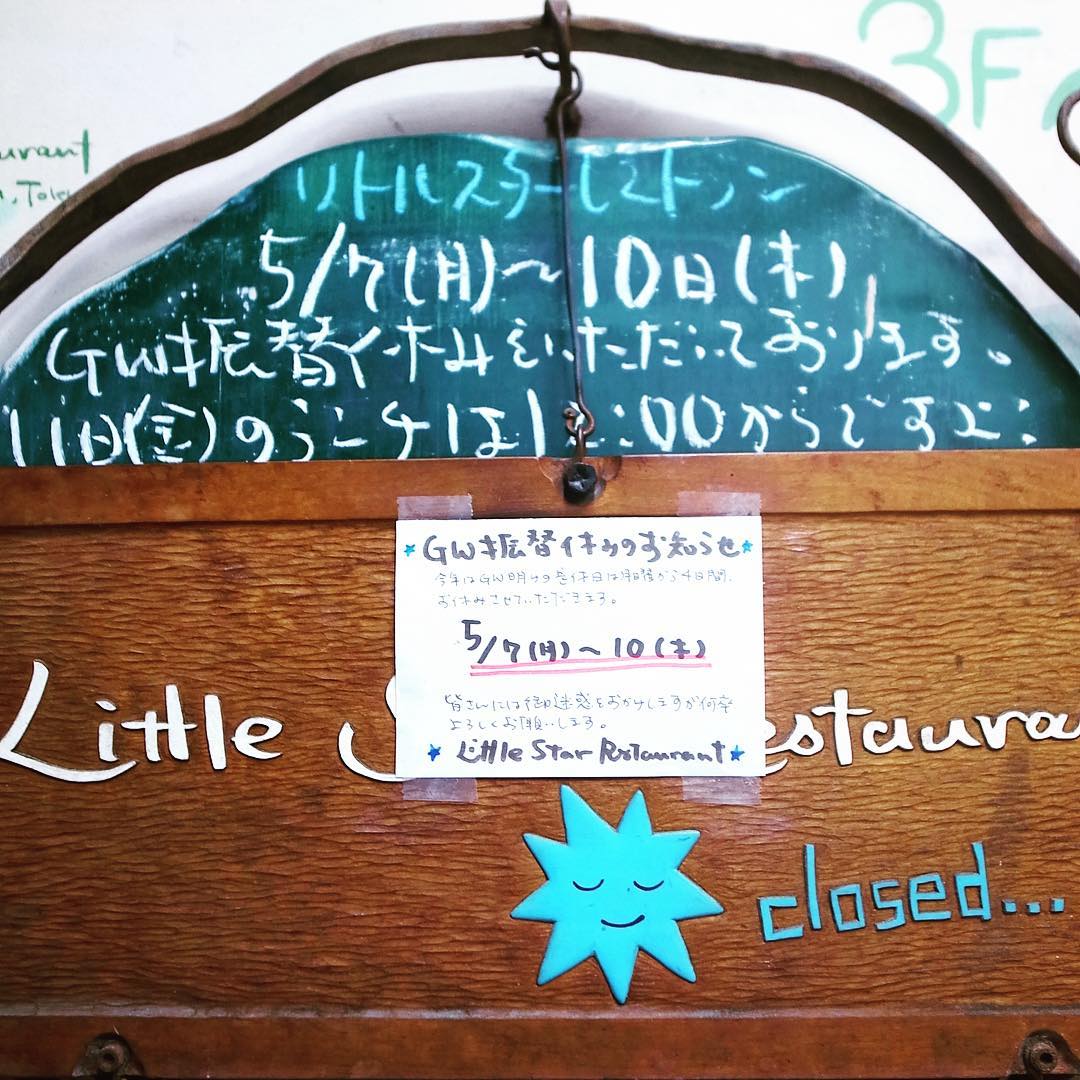 3F
urant
リトルスターレストラン
5/7(月)〜10日(木)
GW振替休みをいただいております。
11日(金)のランチは12:00からですよ:
★GW振替休みのお知らせ★
今年はGW明けの振休日は月曜から4日間、
お休みさせていただきます。
5/7(月)〜10(木)
皆さんには御迷惑をおかけしますが何卒
よろしくお願いします。
★Little Star Restaurant★
Little S estaura
closed...